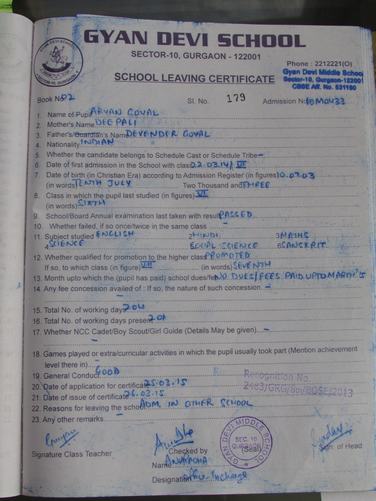 GYAN DEVI SCHOOL
SECTOR-10, GURGAON - 122001
Phone : 2212221(O)
Gyan Devi Middle School
Sector-10, Gurgaon-122001
CBSE Aff. No. 531160
SCHOOL LEAVING CERTIFICATE
Book No. 02 Sl. No. 179 Admission No.
1. Name of Pupil ARYAN GOYAL
2. Mother's Name DEEPALI
3. Father's/Guardian's Name DEVENDER GOYAL
4. Nationality INDIAN
5. Whether the candidate belongs to Schedule Cast or Schedule Tribe -
6. Date of first admission in the School with class 22.03.14/VI
7. Date of birth (in Christian Era) according to Admission Register (in figures) 10.07.03
(in words) TENTH JULY Two Thousand and THREE
8. Class in which the pupil last studied (in figures) VI
(in words) SIXTH
9. School/Board Annual examination last taken with result PASSED
10. Whether failed, if so once/twice in the same class -
11. Subject studied 1 ENGLISH 2 HINDI 3 MATHS
4 SCIENCE 5 SOCIAL SCIENCE 6 SANSKRIT
12. Whether qualified for promotion to the higher class PROMOTED
If so, to which class (in figure) VII (in words) SEVENTH
13. Month upto which the (pupil has paid) school dues/fee NO DUES/FEES PAID UPTO MARCH'15
14. Any fee concession availed of : If so, the nature of such concession. -
15. Total No. of working days 204
16. Total No. of working days present 201
17. Whether NCC Cadet/Boy Scout/Girl Guide (Details May be given). -
18. Games played or extra/curricular activities in which the pupil usually took part (Mention achievement
level there in) -
19. General Conduct GOOD
20. Date of application for certificate 25.03.15
21. Date of issue of certificate 26.03.15
22. Reasons for leaving the school ADM. IN OTHER SCHOOL
23. Any other remarks -
Recognition No.
Signature Class Teacher
Checked by
(Seal)
Sign. of Head
Name ANURADHA
Designation Office Incharge
GYAN DEVI MIDDLE SCHOOL
SEC. 10
GURGAON